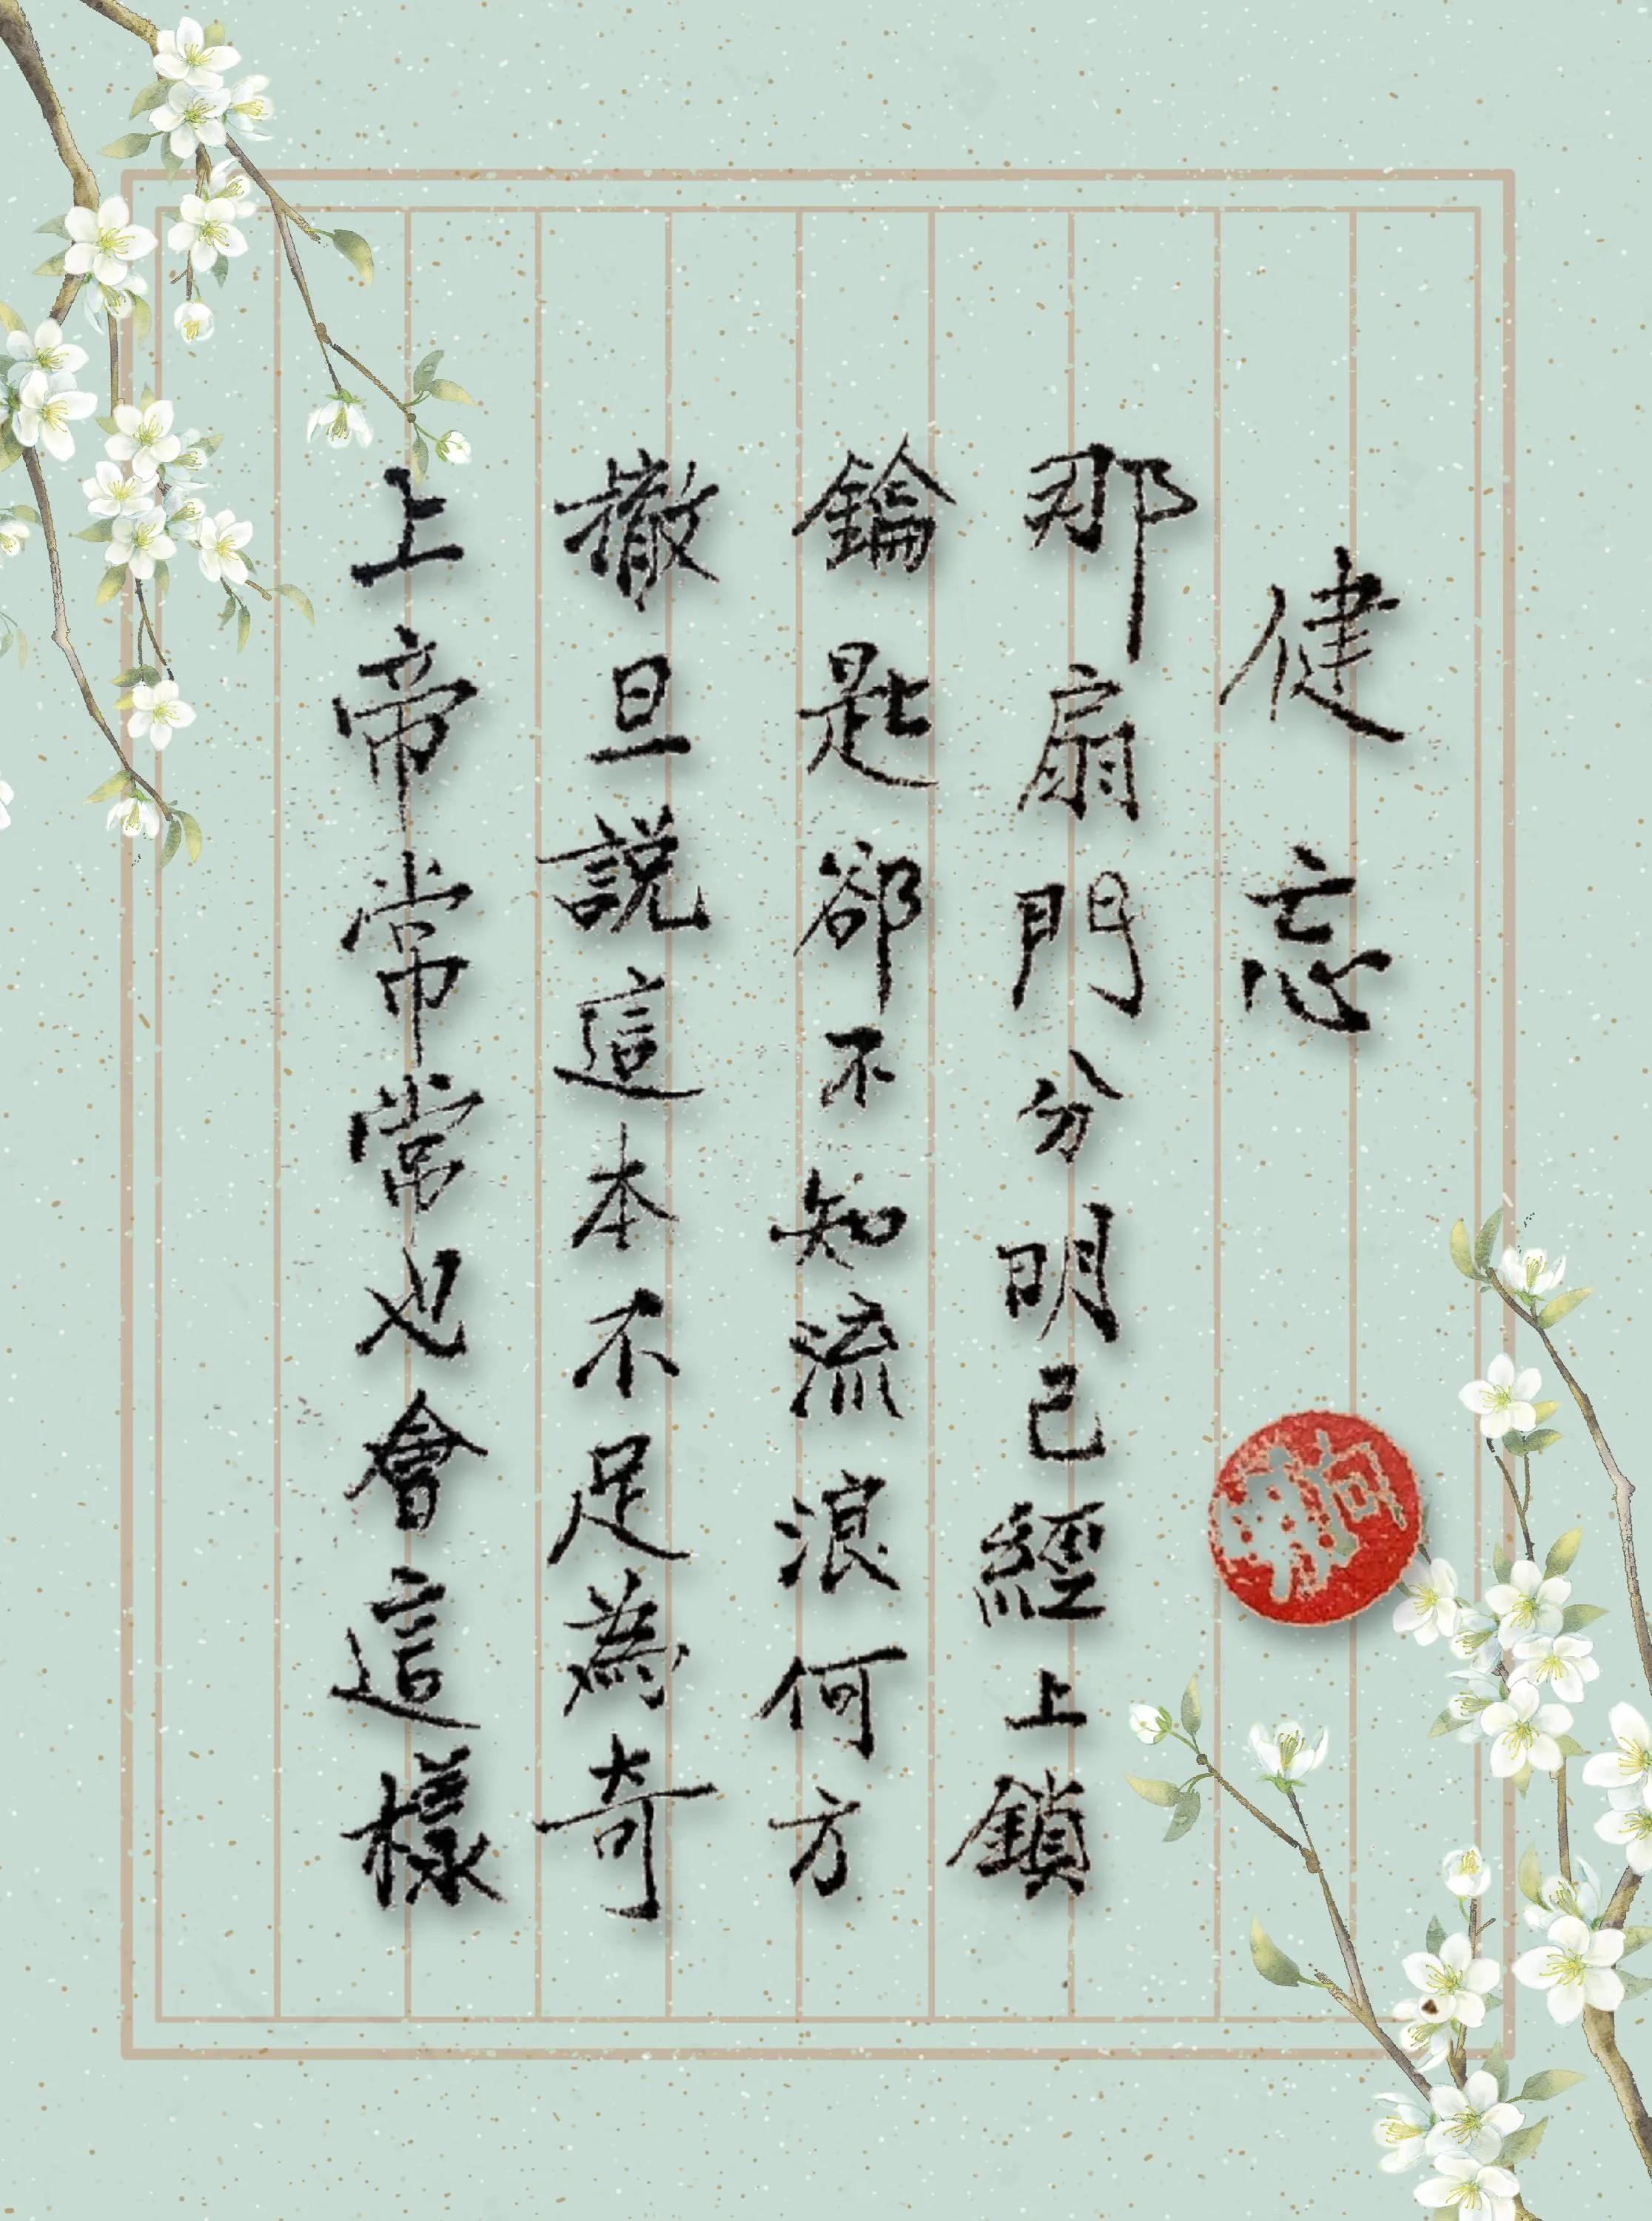 健忘
那扇門分明已經上鎖
鑰匙卻不知流浪何方
撒旦說這本不足為奇
上帝常常常也會這樣